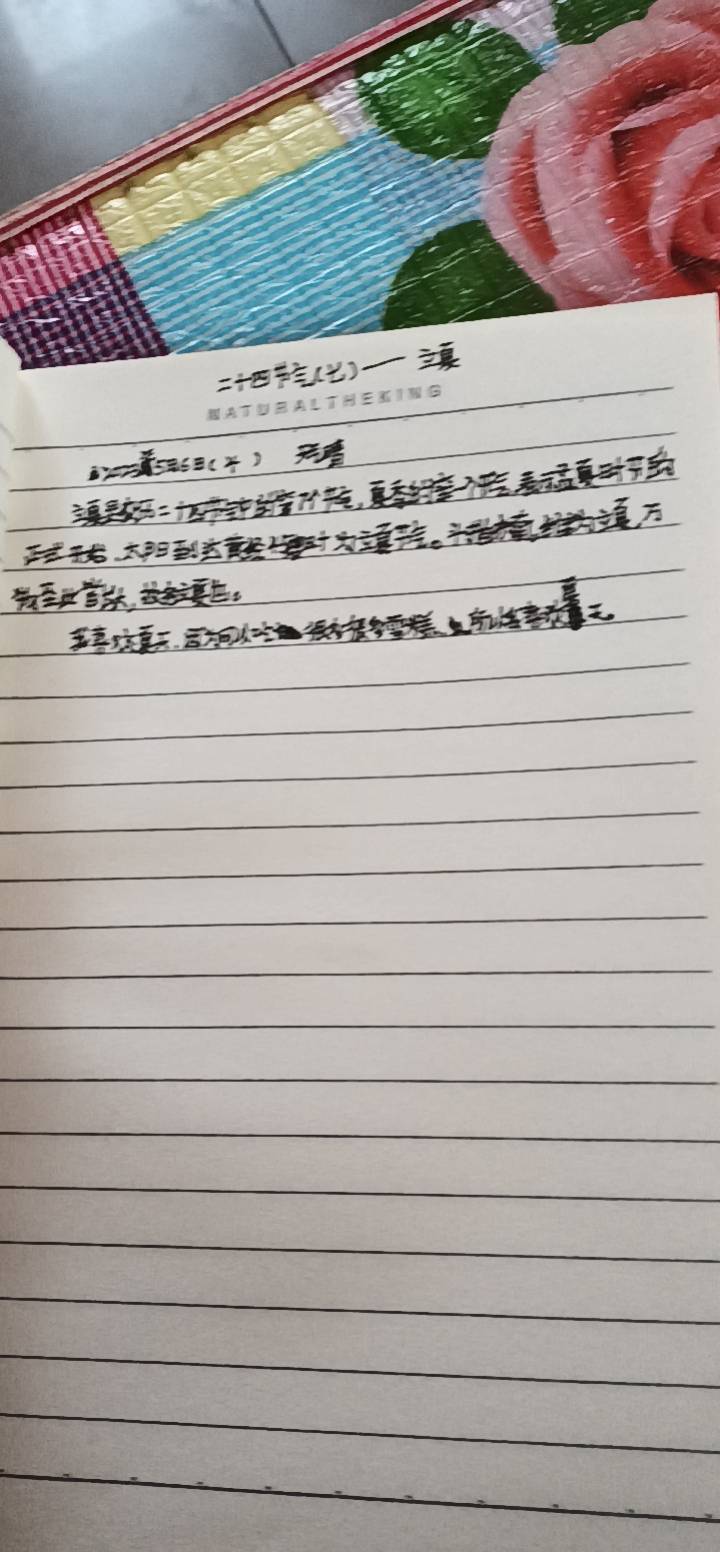 二十四节气(七)——立夏
NATURALTHEKING
5月6日( ) 天晴
立夏是农历二十四节气中的第7个节气,夏季的第一个节气,表示孟夏时节的
正式开始,太阳到达黄经45度时为立夏节气。斗指东南,维为立夏,万
物至此皆长大,故名立夏也。
我喜欢夏天,因为可以吃很多很多雪糕,所以我喜欢夏天。